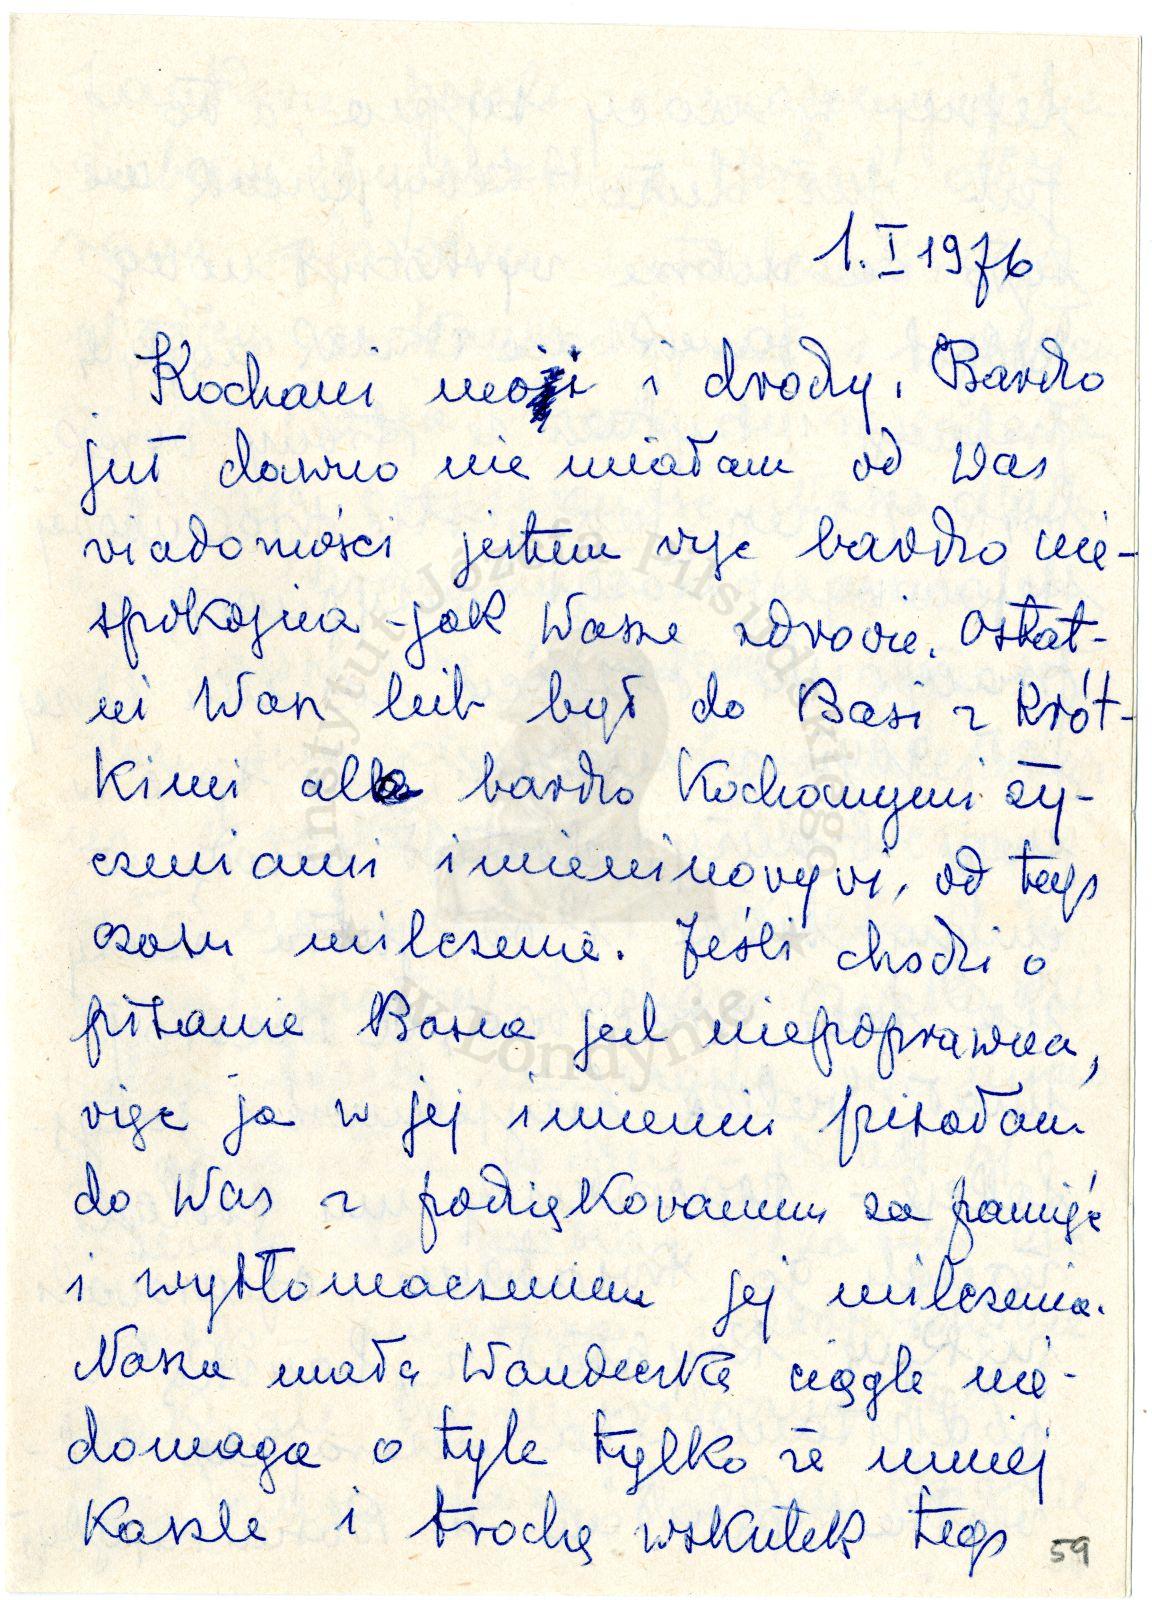 1. I 1976
Kochani moji i drodzy. Bardzo
już dawno nie miałam od Was
wiadomości jestem więc bardzo nie-
spokojna - jak Wasze zdrowie. Ostat-
ni Wasz list był do Basi z krót-
kimi ale bardzo kochanymi ży-
czeniami imieninovyvi, od tego
czasu milczenie. Jeśli chodzi o
pisanie Basia jest niepoprawna,
więc ja w jej imieniu pisałam
do Was z podziękowaniem za pamięć
i wytłomaczeniem jej milczenia.
Nasza mała Wandeczka ciągle nie-
domaga o tyle tylko że mniej
kaszle i trochę wskutek tego
59
Instytut Józefa Piłsudskiego
w Londynie